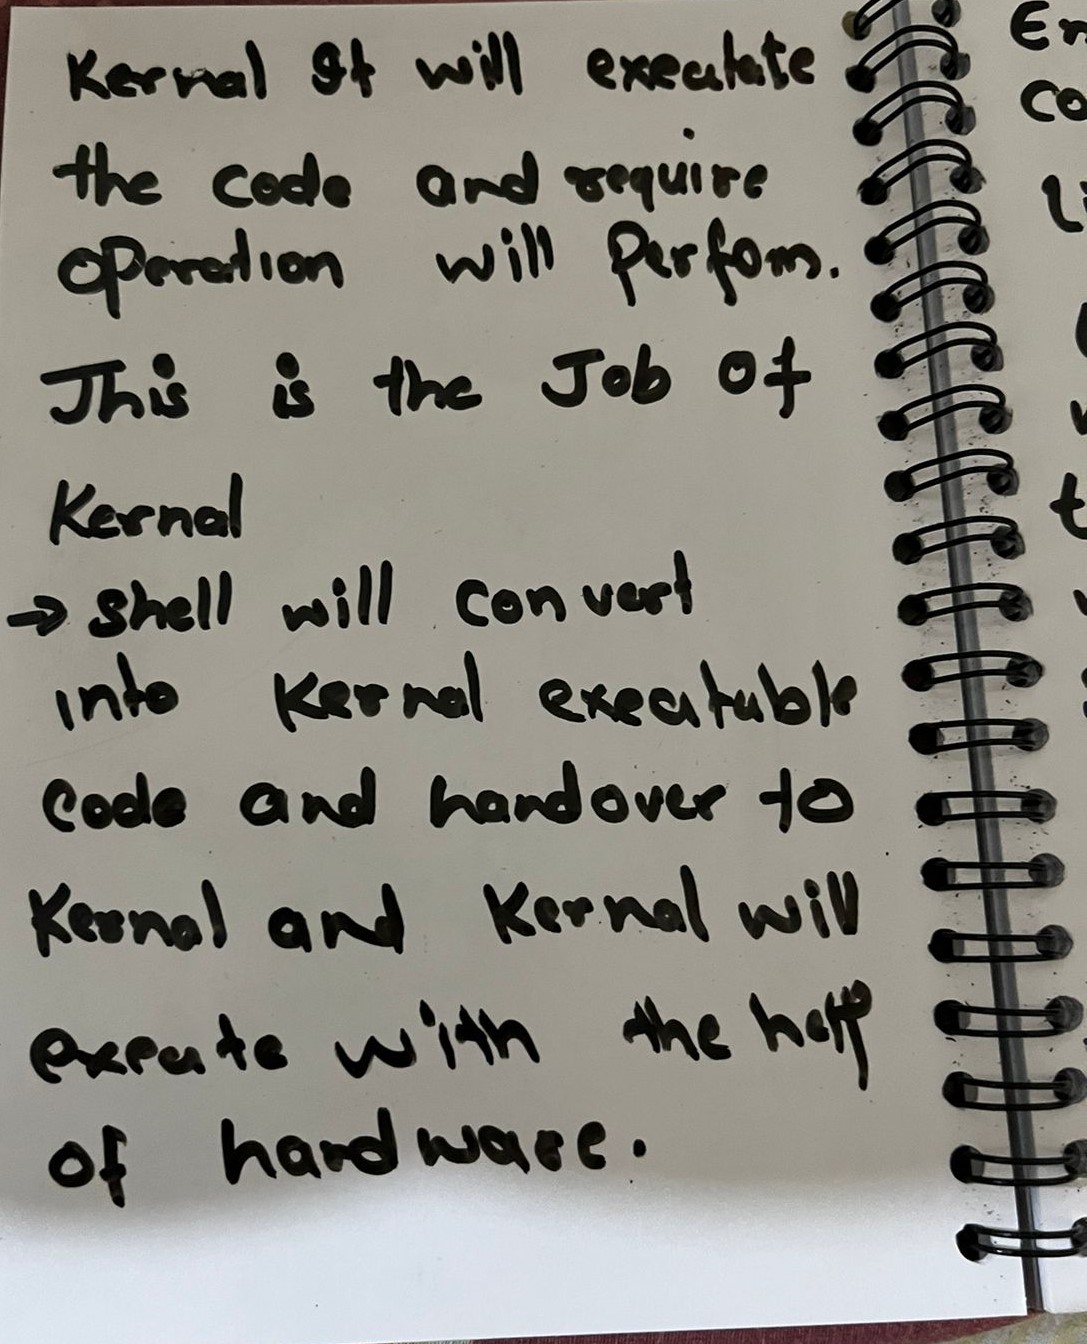 Kernal It will exeatate
the code and require
operation will Perfom.
This is the Job of
Kernal
→ shell will convert
into Kernal exeatuble
code and handover to
Kernal and Kernal will
exeate with the help
of hardware.
En
co